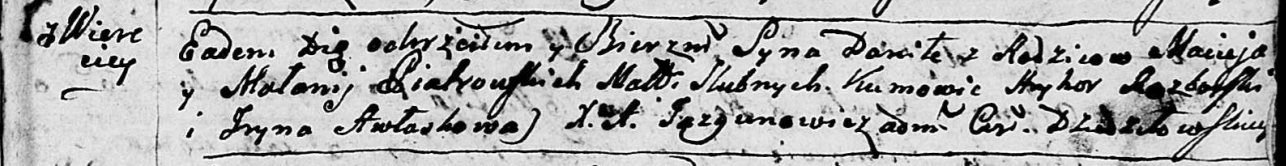 z Wierе
ciey
Eadem Die ochrżciłem y Bierzm Syna Daniłę z Rodzicow Macieja
y Małanij Piatrowskich Małż Slubnych. Kumowie Hryhor Rozborski
i Iryna Awłaskowa) X. A. Jazgunowicz adm Cer. Dziedziłowskiey